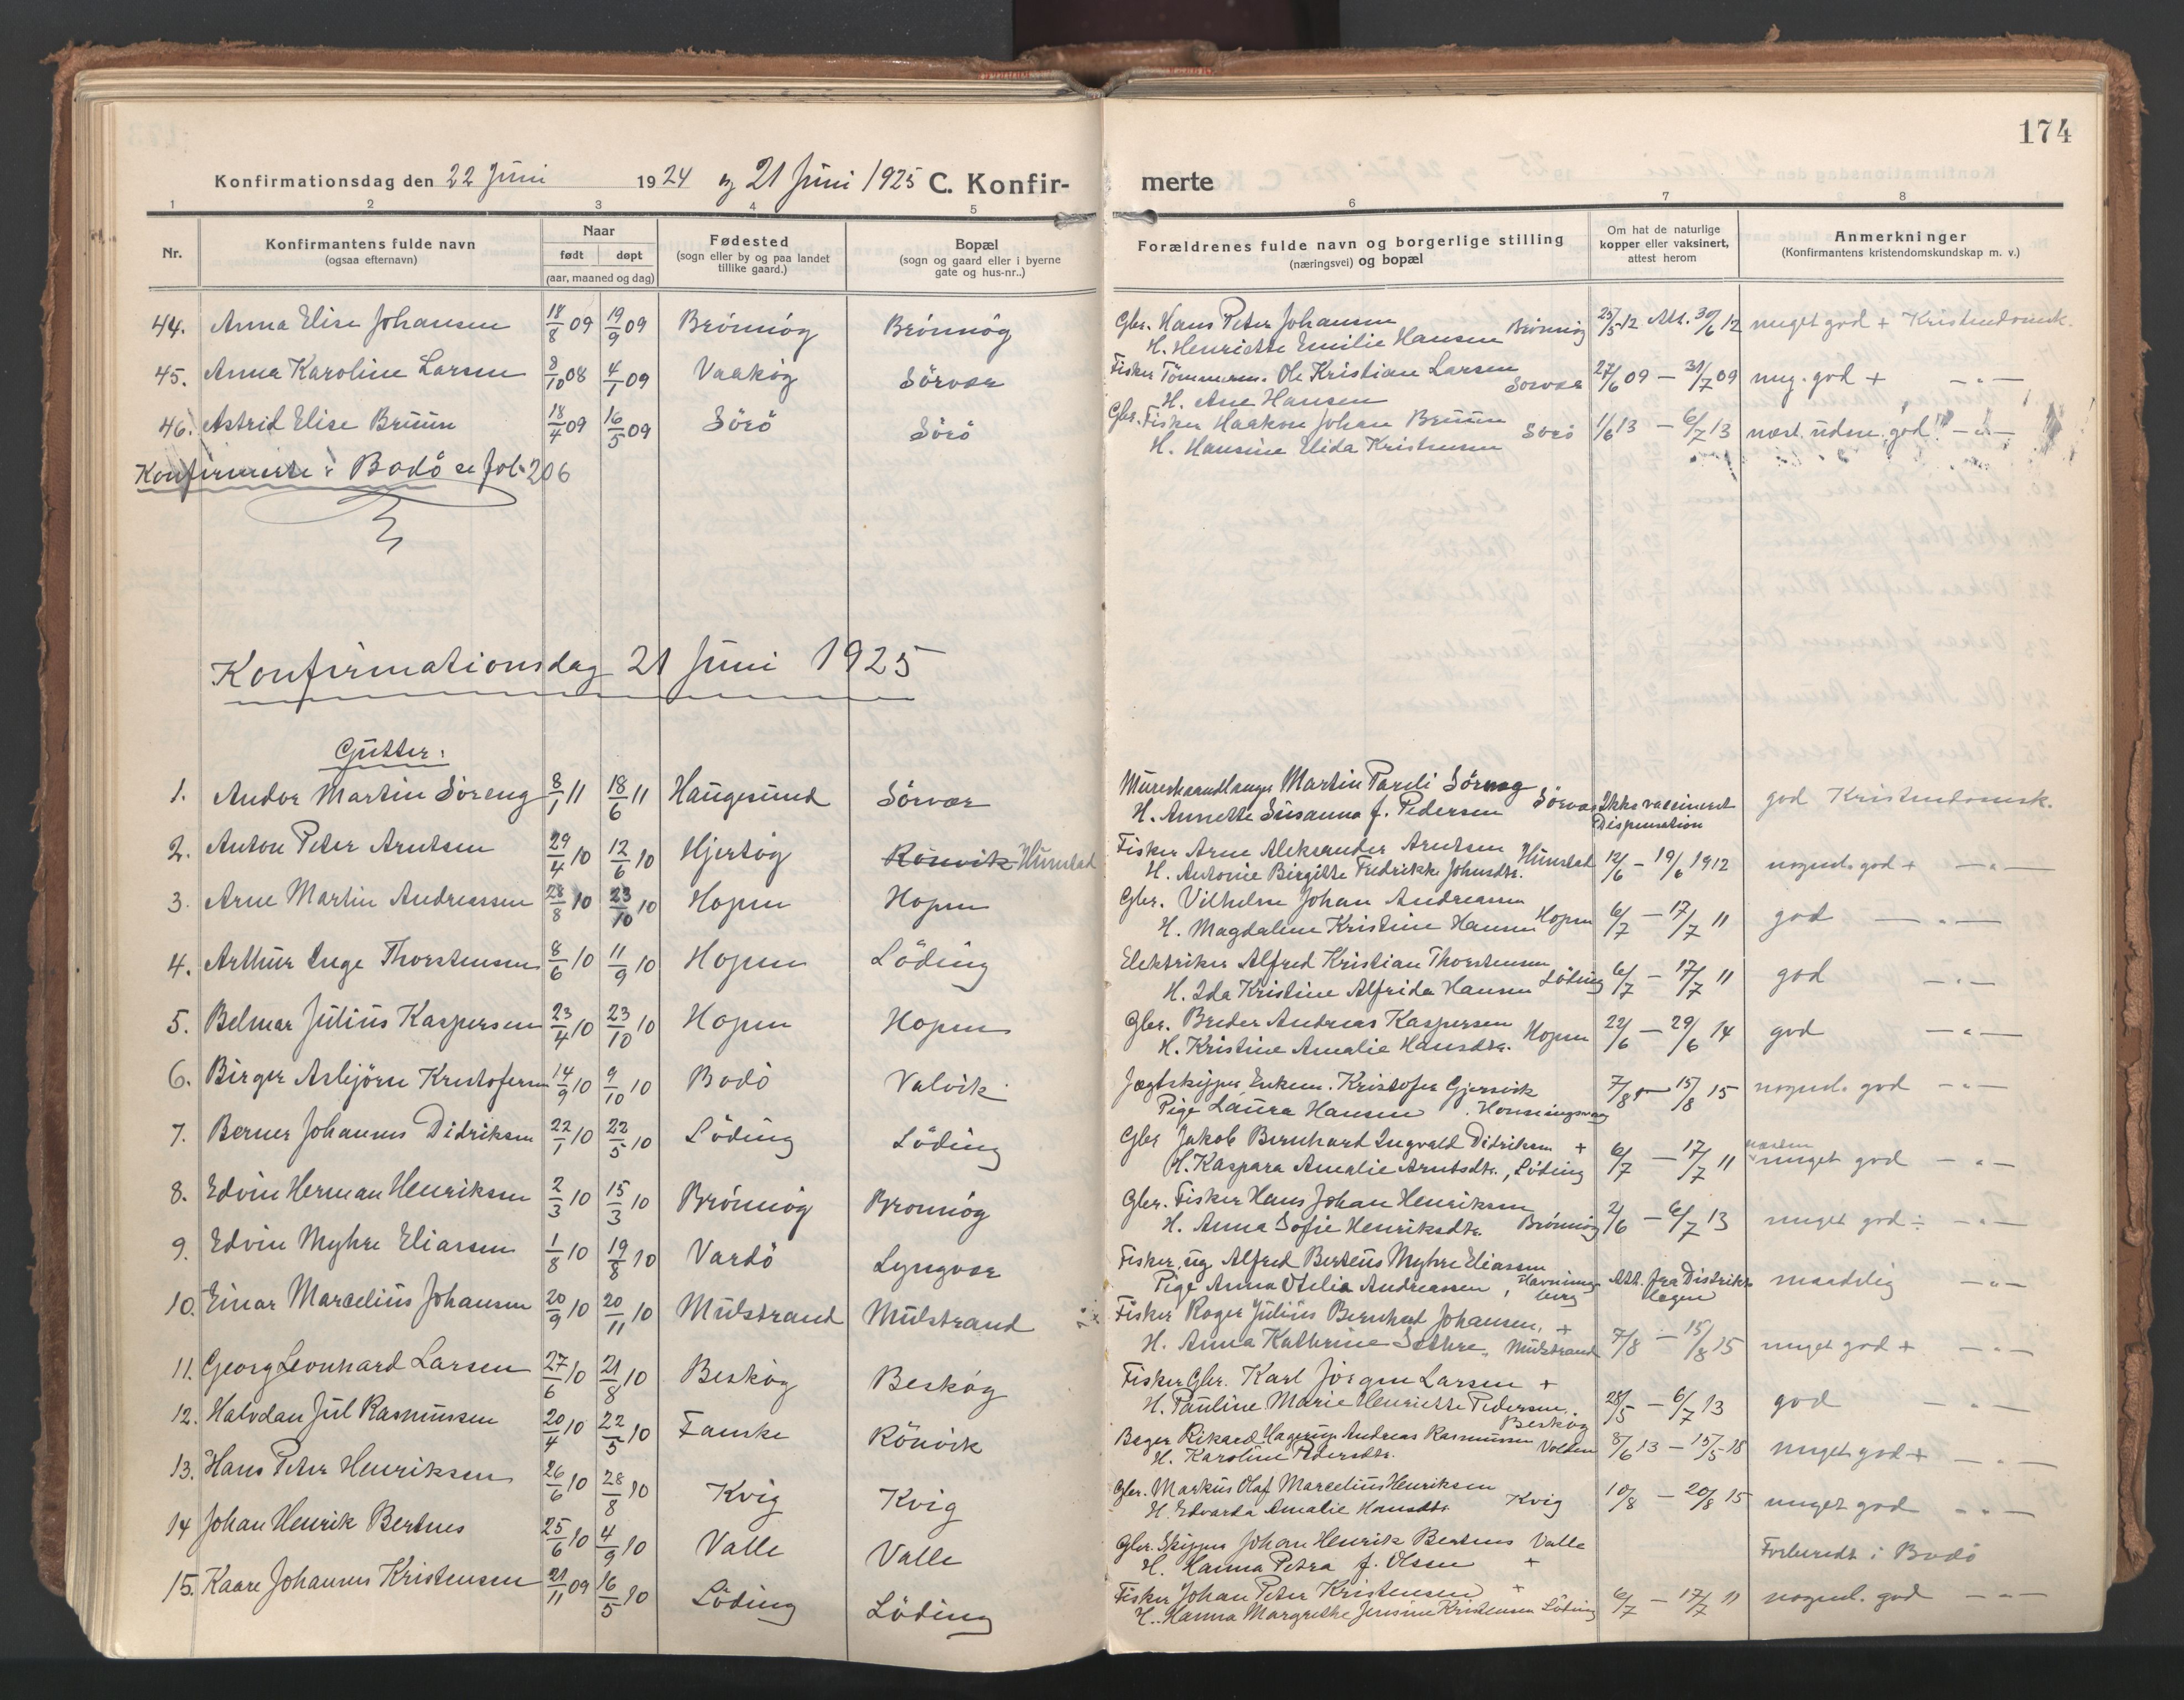 174
Konfirmationsdag den 22 Juni 1924 og 21 Juni 1925 C. Konfir-merte
1 2 3 4 5 6 7 8
Nr. Konfirmantens fulde navn (ogsaa efternavn) Naar født døpt (aar, maaned og dag) Fødested (sogn eller by og paa landet tillike gaard.) Bopæl (sogn og gaard eller i byerne gate og hus-nr..) Forældrenes fulde navn og borgerlige stilling (næringsvei) og bopæl Om hat de naturlige kopper eller vaksinert, attest herom Anmerkninger (Konfirmantens kristendomskundskap m. v.)
44. Anna Elise Johansen 18/8 09 19/9 09 Brönnög Brönnög Gbr. Hans Peter Johansen
H. Henriette Emilie Hansen Brönnög 25/5 12 Att. 30/6 12 meget god + Kristendomsk.
45. Anna Karoline Larsen 8/10 08 4/1 09 Vaakög Sörvær Fisker Tömmerm. Ole Kristian Larsen
H. Ane Hansen Sörvær 27/6 09 — 31/7 09 meg. god + — " —
46. Astrid Elise Bruun 18/4 09 16/5 09 Sörö Sörö Gbr. Fisker Haakon Johan Bruun
H. Hansine Elida Kristensen Sörö 1/6 13 — 6/7 13 mest. udm. god — " —
Konfirmerte i Bodö se fol. 206
Konfirmationsdag 21 Juni 1925
Gutter:
1. Andor Martin Söreng 8/1 11 18/6 11 Haugesund Sörvær Murerhaandlanger Martin Pareli Söreng
H. Annette Susanna f. Pedersen Sörvær Ikke vaccineret Dispensation god Kristendomsk.
2. Anton Peter Arntsen 29/4 10 12/6 10 Hjertög Rönvik Hunstad Fisker Arne Aleksander Arntsen
H. Antonie Birgitte Fredrikke Johnsdtr. Hunstad 12/6 — 19/6 1912 nogenl. god + — " —
3. Arne Martin Andreassen 28/8 10 23/10 10 Hopen Hopen Gbr. Vilhelm Johan Andreassen
H. Magdaline Kristine Hansen Hopen 6/7 — 17/7 11 god — " —
4. Arthur Inge Thorstensen 8/6 10 11/9 10 Hopen Löding Elektriker Alfred Kristian Thorstensen
H. Ida Kristine Alfrida Hansen Löding 6/7 — 17/7 11 god — " —
5. Belmar Julius Kaspersen 23/4 10 23/10 10 Hopen Hopen Gbr. Breder Andreas Kaspersen
H. Kristine Amalie Hansdtr. Hopen 22/6 — 29/6 14 god — " —
6. Birger Asbjörn Kristofersen 14/9 10 9/10 10 Bodö Valvik Jægtskipper Enkem. Kristofer Gjersvik
Pige Laura Hansen . Honningsvaag 7/8 — 15/8 15 nogenl. god — " —
7. Berner Johannes Didriksen 22/1 10 22/5 10 Löding Löding Gbr Jakob Bernhard Ingvald Didriksen +
H. Kaspara Amalie Arntsdtr., Löding 6/7 — 17/7 11 næsten meget god — " —
8. Edvin Herman Henriksen 2/3 10 15/3 10 Brönnög Brönnög Gbr. Fisker Hans Johan Henriksen
H. Anna Sofie Henriksdtr. Brönnög 2/6 — 6/7 13 meget god ÷ — " —
9. Edvin Myhre Eliassen 1/8 10 19/8 10 Vardö Lyngvær Fisker, ug Alfred Berteus Myhre Eliassen
Pige Anna Otelia Andreassen, Havningberg Att. fra Distriktslægen maadelig — " —
10. Einar Marcelius Johansen 20/9 10 20/11 10 Mulstrand Mulstrand Fisker Roger Julius Bernhard Johansen, +
H. Anna Kathrine Sethre, Mulstrand 7/8 — 15/8 15 meget god + — " —
11. Georg Leonhard Larsen 27/6 10 21/8 10 Beskög Beskög Fisker Gbr. Karl Jörgen Larsen +
H. Pauline Marie Henriette Pedersen. Beskög 28/5 — 6/7 13 god — " —
12. Halvdan Jul Rasmussen 20/4 10 22/5 10 Fauske Rönvik Bager Rikard Hagerup Andreas Rasmussen
H. Karoline Pedersdtr. Volden 8/6 13 — 15/5 18 meget god + — " —
13. Hans Peter Henriksen 26/6 10 28/8 10 Kvig Kvig Gbr. Markus Olaf Marcelius Henriksen
H. Edvarda Amalie Hansdtr. Kvig 10/8 — 20/8 15 meget god — " —
14 Johan Henrik Bertnes 25/6 10 4/9 10 Valle Valle Gbr. Skipper Johan Henrik Bertnes Valle
H. Hanna Petra f. Olsen + Forberedt i Bodö
15. Kaare Johannes Kristensen 21/11 09 16/5 10 Löding Löding Fisker Johan Peter Kristensen +
H. Hanna Margrethe Jensine Kristensen Löding 6/7 — 17/7 11 nogenl. god — " —